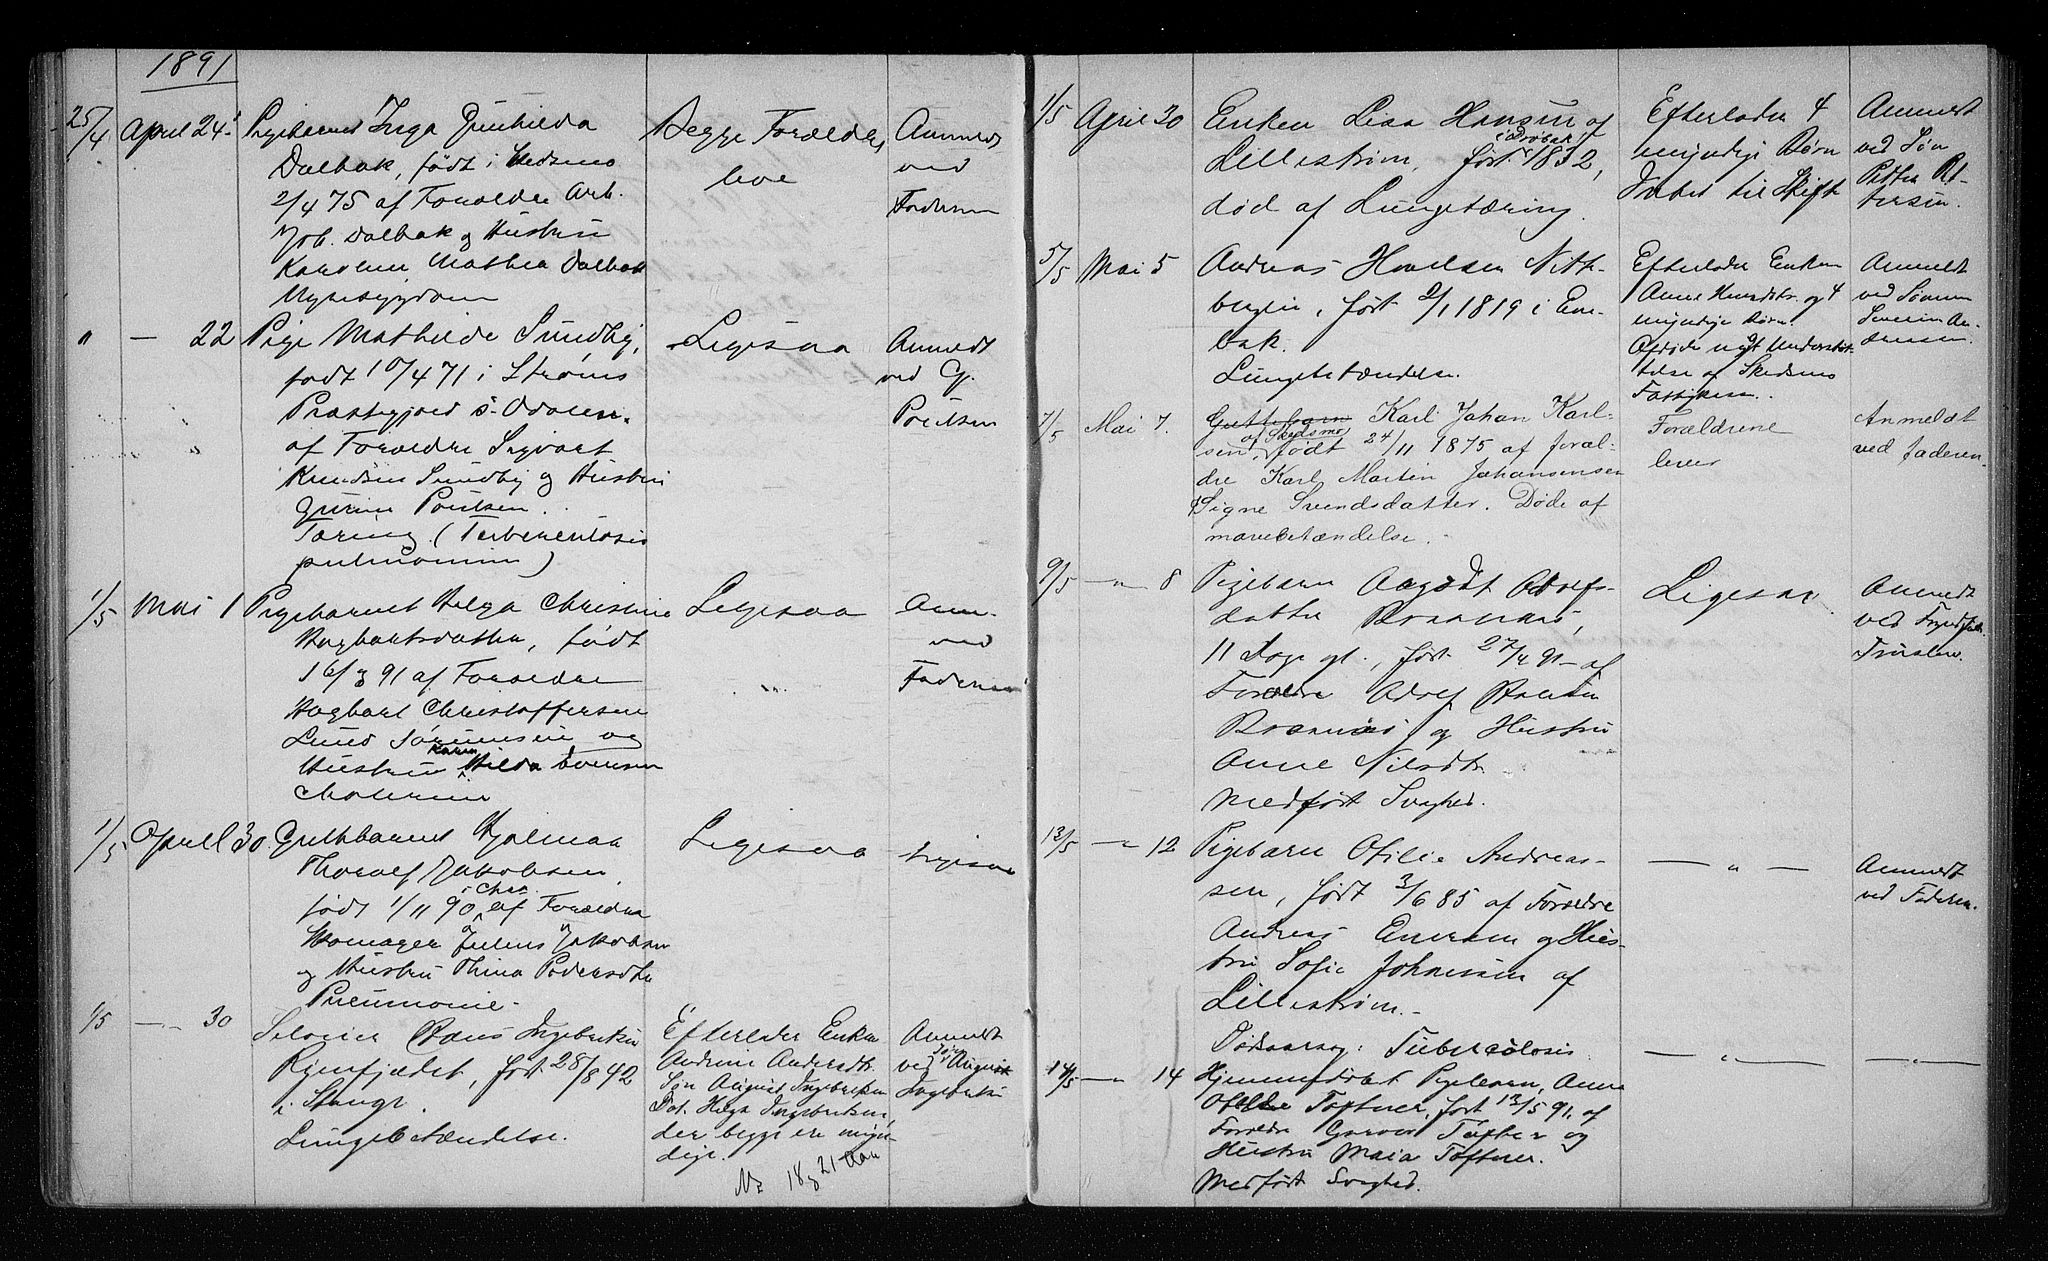 1891
25/4 April 24. Pigebarnet Inga Gunhilda Begge Forældre Anmeldt
Dalbak, født i Skedsmo leve ved
2/4 75 af Forældre Arb. Faderen
Joh. Dalbak og Hustru
Karoline Mathea Dalbak
Nyresygdom
" — 22 Pige Mathilde Sundby, Ligesaa Anmeldt
født 10/4 71 i Strøms ved G.
Præstegjæld S. Odalen Poulsen
af Forældre Sigvart
Knudsen Sundby og Hustru
Gurine Poulsen.
Tæring (Tuberculosis
pulmonum)
1/5 Mai 1 Pigebarnet Helga Christine Ligesaa Anm.
Hagbartsdatter, født ved
16/3 91 af Forældre Faderen
Hagbart Christoffersen
Lund Sørumsen og
Karen
Hustru Hilda
Cholerine
1/5 April 30. Guttebarnet Hjalmar Ligesaa Ligesaa
Thoralf Jakobsen,
i Chra.
født 1/11 90 af Forældre
Skomager Julius Jakobsen
og Hustru Thina Pedersdtr
Pneumonie.
1/5 — 30 Selveier Hans Ingebretsen Efterlader Enken Anmeldt
Ryenfjædet, født 28/8 42 Andrine Andersdtr. ved Søn August
i Stange. Søn August Ingebretsen Ingebretsen
Lungebetændelse. Dat. Helga Ingebretsen,
der begge ere myn-
dige.
18 & 21 Aar
1/5 April 30 Enken Lisa Hansen af Efterlader 4 Anmeldt
i Drøbak
Lillestrøm, født 1832, myndige Børn ved Søn
død af Lungetæring. Intet til Skifte Petter Pet-
tersen.
5/5 Mai 5 Andreas Hovelsen Nitt- Efterlader Enken Anmeldt
bergeie, født 2/1 1819 i Ene- Anne og 4 ved Sønnen
bak. myndige Børn. Severin An-
Lungebetændelse. Afdøde nydt Understøt- dreasen.
telse af Skedsmo
Fattigkasse.
7/5 Mai 7. Guttebarn Karl Johan Karl- Forældrene Anmeldt
af Skedsmo
sen, født 24/11 1875 af foræl- lever ved faderen.
dre Karl Martin Johansensen
& Signe Svendsdatter. Døde af
mavebetændelse.
9/5 — " — 8 Pigebarn Aagodt Adolfs- Ligesaa Anmeldt
datter Braanaas, ved
11 Dage gl., født 27/4 91 af
Forældre Adolf Hansen
Braanaas og Hustru
Anne Nilsdtr.
Medfødt Svaghed.
13/5 — " — 12 Pigebarn Otilie Andreas- — " — Anmeldt
sen, født 3/6 85 af Forældre ved Faderen.
Andreas Enersen og Hus-
tru Sofie Johnessen af
Lillestrøm.
Dødsaarsag: Tuberculosis.
14/5 — " — 14 Hjemmedøbt Pigebarn, Anna — " — — " —
Toftner, født 13/5 91, af
Forældre Toftner og
Hustru Maia Toftner.
Medfødt Svaghed.